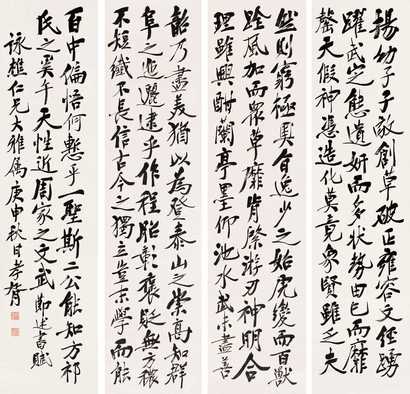 揚幼子子敬創草破正雍容文經踴
躍武定態遺妍而多狀勢由己而靡
罄天假神憑造化莫竟象賢雖乏夫
然則窮極奧旨逸少之始虎變而百獸
跧風加而衆草靡肯綮游刃神明合
理雖興酣蘭亭墨仰池水武未盡善
韶乃盡美猶以為登泰山之崇高知群
阜之迤邐逮乎作程昭彰褒貶無方穠
不短纖不長信古今之獨立豈末學而能
百中偏悟何慙乎一聖斯二公能知方祁
氏之奚午天性近周家之文武 節述書賦
詠樵仁兄大雅屬 庚申秋日孝胥